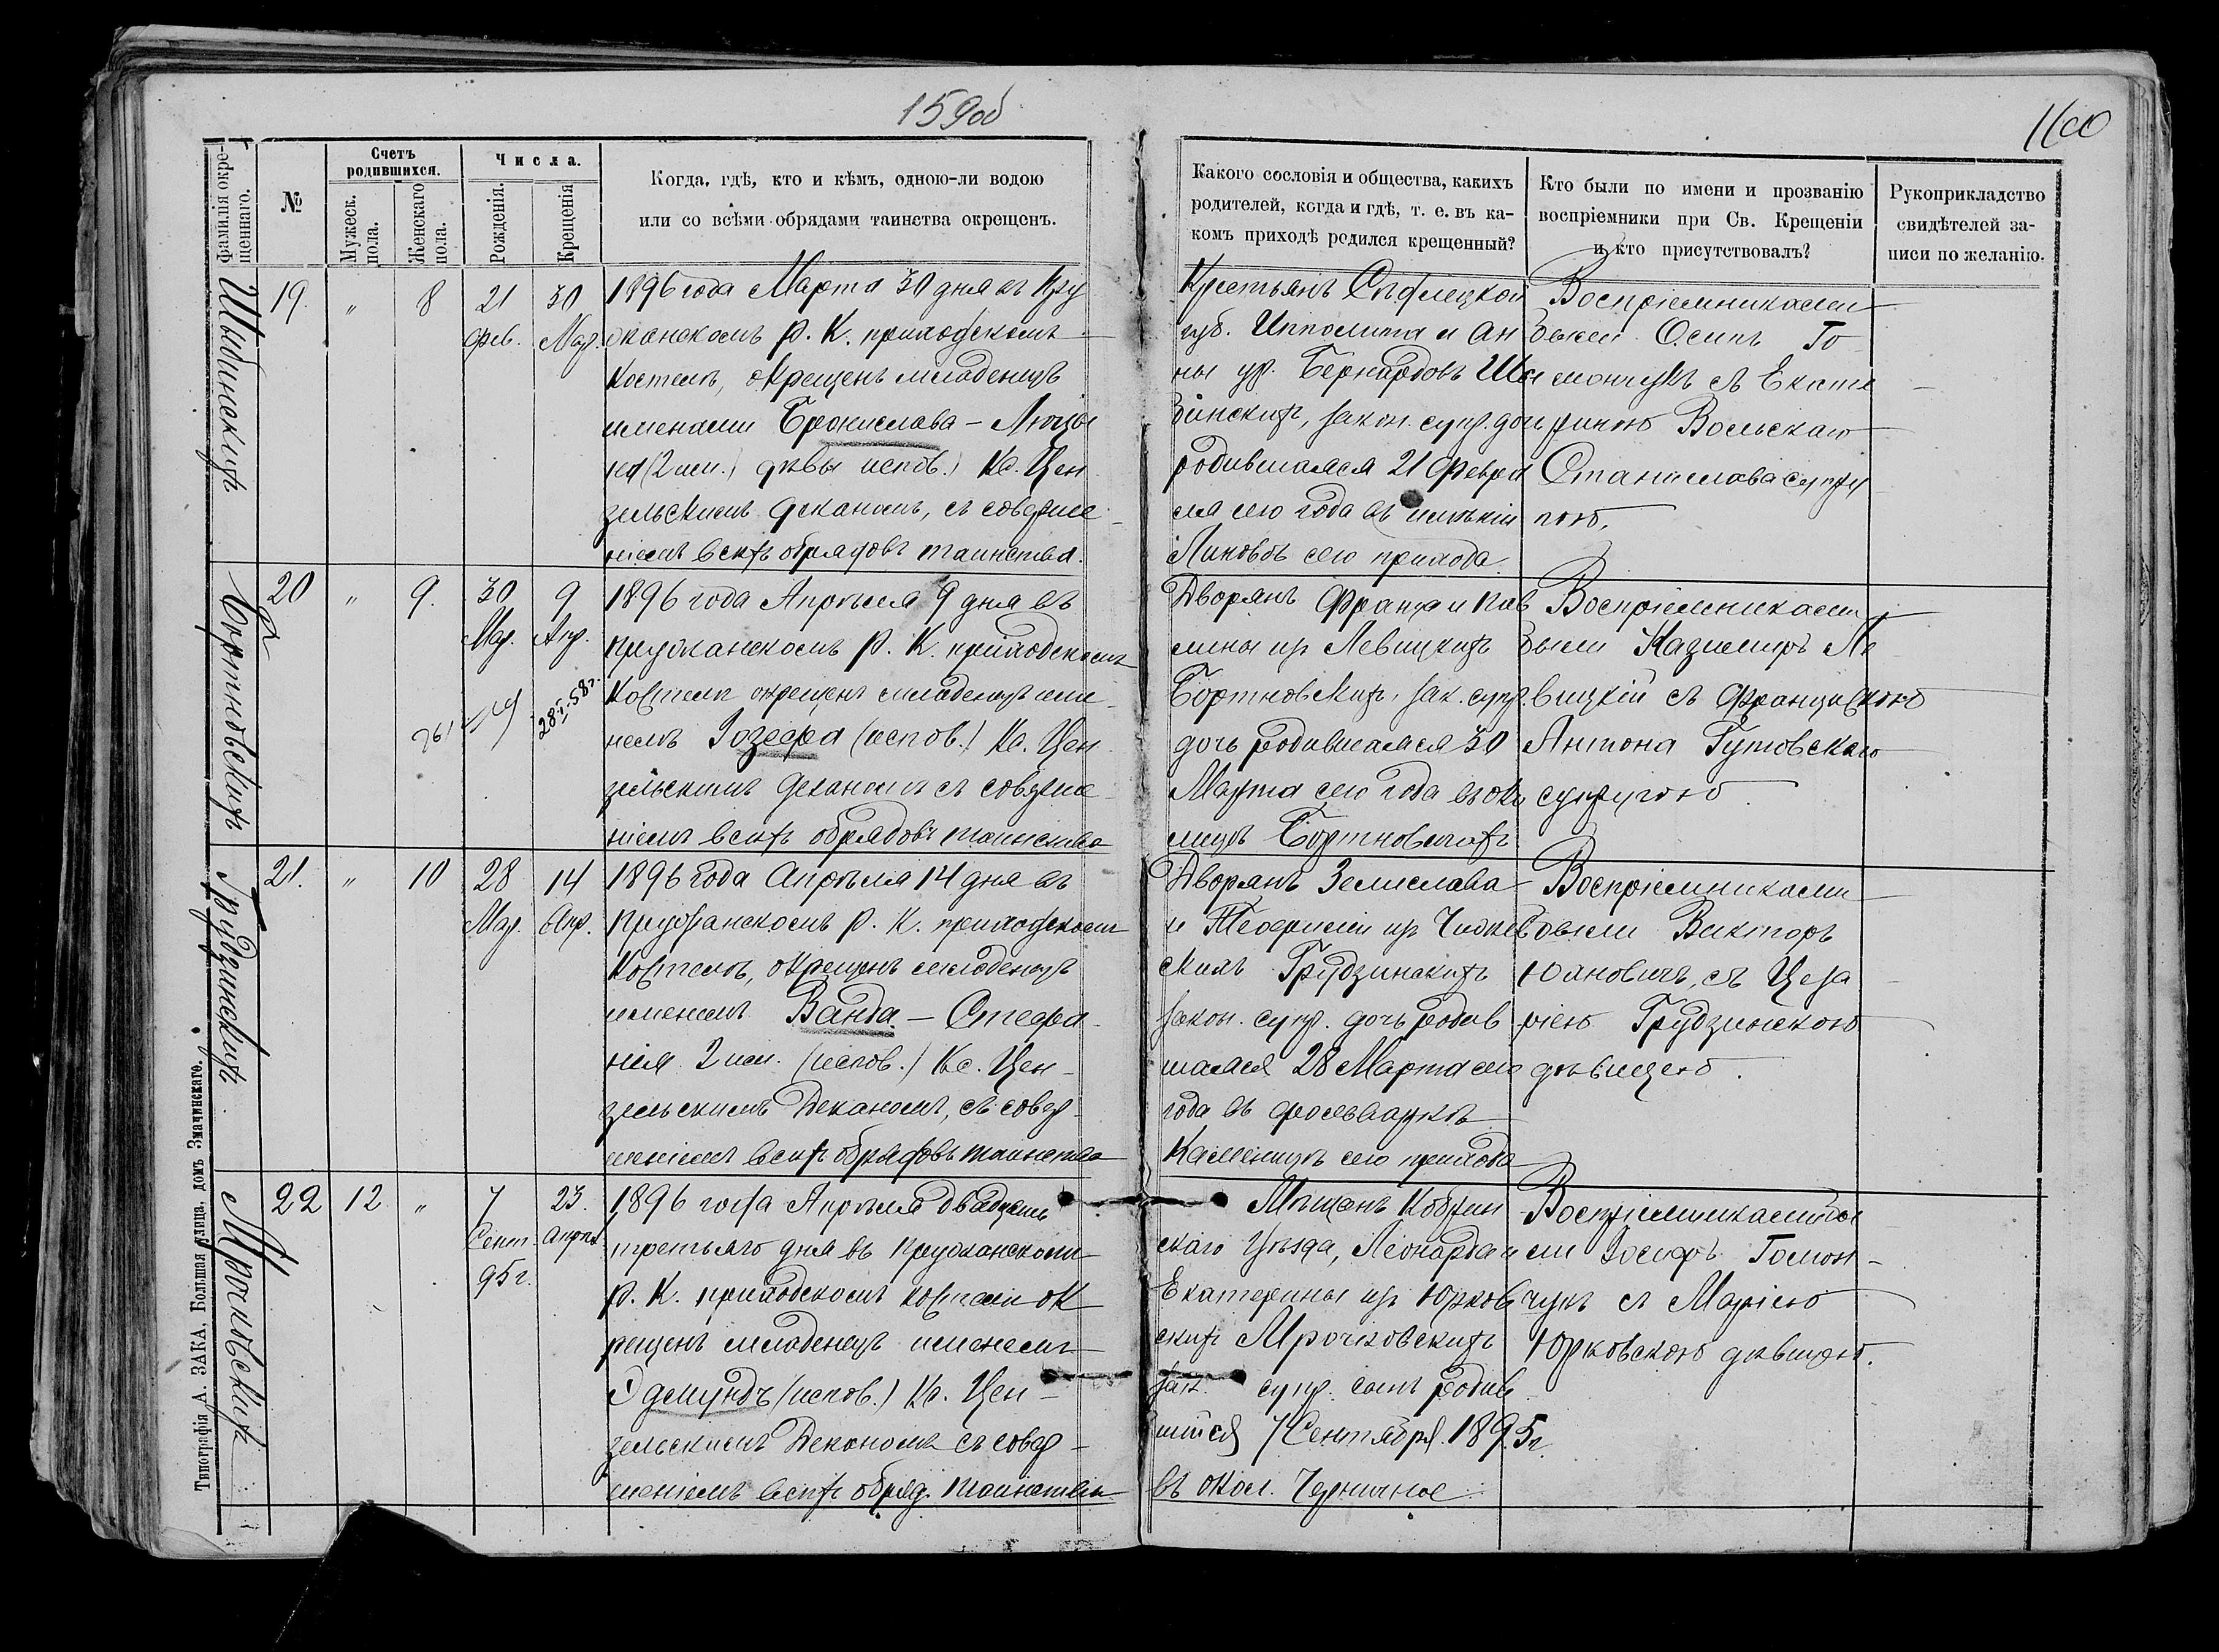 159об
160
Фамилія окрещеннаго.
№
Счетъ родившихся.
Мужеск. пола.
Женскаго пола.
Числа.
Рожденія.
Крещенія
Когда, гдѣ, кто и кѣмъ, одною-ли водою
или со всѣми обрядами таинства окрещенъ.
Какого сословія и общества, какихъ
родителей, когда и гдѣ, т. е. въ ка-
комъ приходѣ родился крещенный?
Кто были по имени и прозванію
воспріемники при Св. Крещеніи
и кто присутствовалъ?
Рукоприкладство
свидѣтелей за-
писи по желанію.
19. " 8 21 фев. 30 Мар.
1896 года Марта 30 дня въ Пру
жанскомъ Р. К. приходскомъ
Костелѣ, окрещенъ младенецъ
именами Бронислава – Люцы
на (2 им.) дѣвы испов.) Кс. Цен
зельскимъ Деканомъ, съ соверше
ніемъ всѣхъ обрядовъ таинства.
Крестьянъ Сѣдлецкой
губ. Ипполита и Ан
ны ур. Бернардовъ
закон. супр. дочь
родившаяся 21 Февра
ля сего года въ имѣніи
Линовѣ сего прихода.
Воспріемниками
были Осипъ Го
мончукъ съ Екате
риною Вольскаго
Станислава супру
гою.
Бортновскихъ
20 " 9. 30 Мар. 9 Апр.
28.I.58г.
1896 года Апрѣля 9 дня въ
пружанскомъ Р. К. приходскомъ
Костелѣ окрещенъ младенецъ име
немъ Іозефа (испов.) Кс. Цен
зельскимъ Деканомъ съ соверше
ніемъ всѣхъ обрядовъ таинства
Дворянъ Франца и Пав
лины ур. Левицкихъ
Бортновскихъ, зак. супр.
дочь родившаяся 30
Марта сего года въ око
лицѣ Бортновичахъ
Воспріемниками
были Казимиръ Ле
вицкій съ Францишкою
Антона Гутовскаго
супругою.
Грудзинскихъ
21. " 10 28 Мар. 14 Апр.
1896 года Апрѣля 14 дня въ
Пружанскомъ Р. К. приходскомъ
Костелѣ, окрещенъ младенецъ
именемъ Ванда – Стефа
нія 2 им. (испов.) Кс. Цен-
зельскимъ Деканомъ, съ совер-
шеніемъ всѣхъ обрядовъ таинства
Дворянъ Земислава
и Теофиліи ур.
скихъ Грудзинскихъ
закон. супр. дочь родив
шаяся 28 Марта сего
года въ фольваркѣ
Каменицѣ сего прихода
Воспріемниками
были Викторъ
Юановичъ, съ Цеза
ріею Грудзинскою
дѣвицею.
Мрочковскихъ
22 12 " 7 Сент. 95г. 23. Апрѣл
1896 года Апрѣля двадцать
третьяго дня въ Пружанскомъ
Р. К. приходскомъ костелѣ ок
рещенъ младенецъ именемъ
Эдмундъ (испов.) Кс. Цен-
зельскимъ Деканомъ съ совер-
шеніемъ всѣхъ обряд. таинства
Мѣщанъ Кобрин
скаго Уѣзда, Леонарда и
Екатерины ур. Юрков
скихъ Мрочковскихъ
зак. супр. сынъ родив
шійся 7 Сентября 1895г.
въ окол. Черничное
Воспріемниками бы
ли Іосифъ Гомон-
чукъ съ Маріею
Юрковскою дѣвицею.
Типографія А. ЗАКА, Большая улица, домъ Значинскаго.